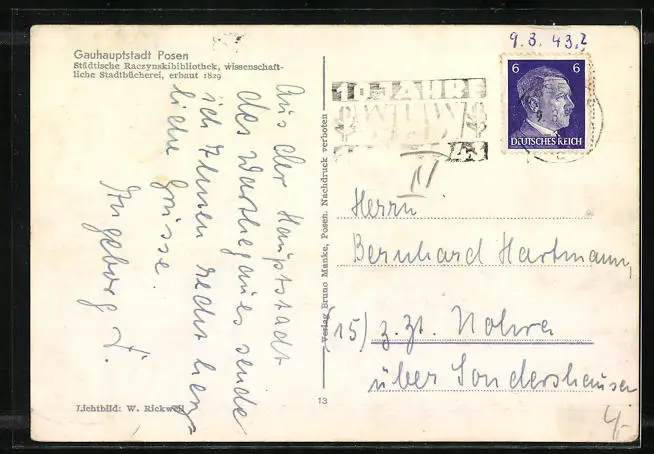 Gauhauptstadt Posen
Städtische Raczynskibibliothek, wissenschaft-
liche Stadtbücherei, erbaut 1829
Aus der Hauptstadt
des Warthegaues sende
ich Ihnen recht herz-
liche Grüsse.
Ingeborg
Lichtbild: W. Rickwell
Verlag Bruno Manke, Posen. Nachdruck verboten
13
9. 3. 43.
10 JAHRE
WHW
6 6
DEUTSCHES REICH
Herrn
Bernhard Hartmann,
(15) z. Zt. Nohra
über Sondershausen
4,-